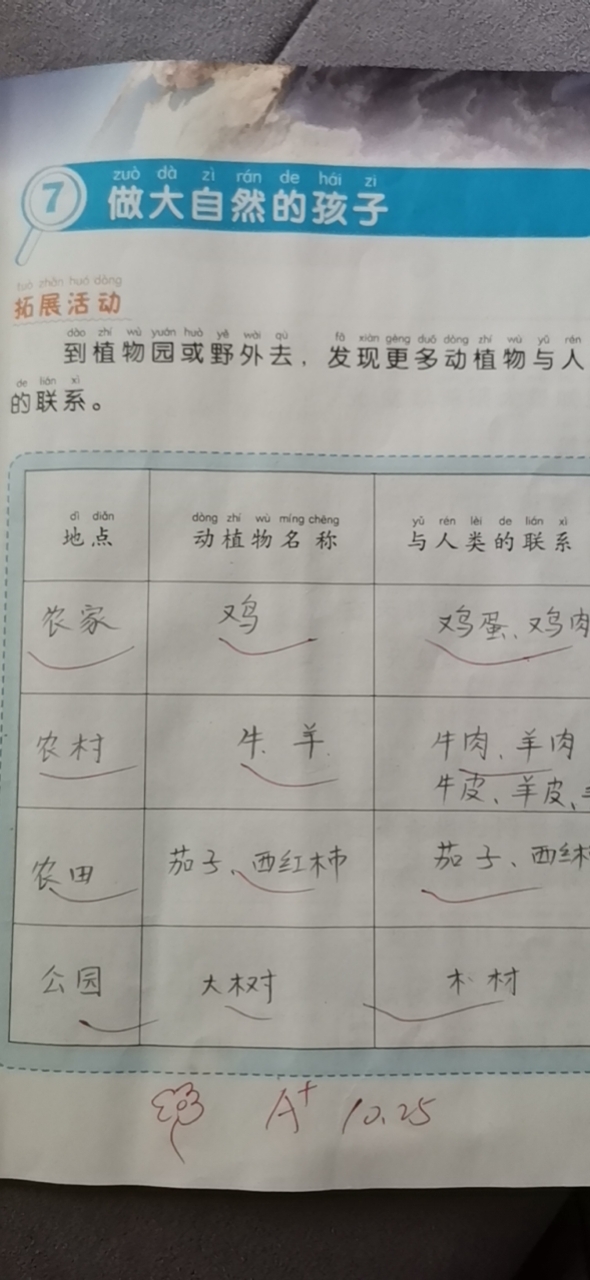 7
zuò dà zì rán de hái zi
做大自然的孩子
tuò zhǎn huó dòng
拓展活动
dào zhí wù yuán huò yě wài qù fā xiàn gèng duō dòng zhí wù yǔ rén
到植物园或野外去，发现更多动植物与人
de lián xì
的联系。
dì diǎn dòng zhí wù míng chēng yǔ rén lèi de lián xì
地点 动植物名称 与人类的联系
农家 鸡 鸡蛋、鸡肉
农村 牛、羊 牛肉、羊肉
牛皮、羊皮、
农田 茄子、西红柿 茄子、西红
公园 大树 木材
A+ 10.25